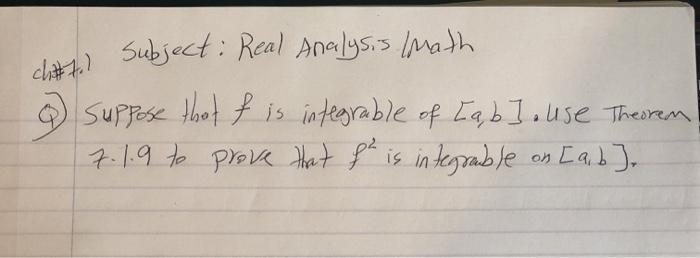 Subject: Real Analysis/Math
ch#7.1
Q) Suppose that f is integrable of [a,b]. Use Theorem
7.1.9 to prove that f² is integrable on [a,b].